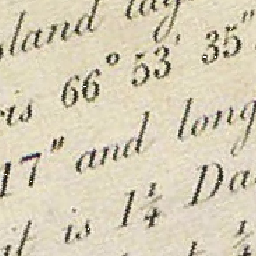 land lay
is 66° 53' 35"
17" and long
it is 1¼ Da
¼